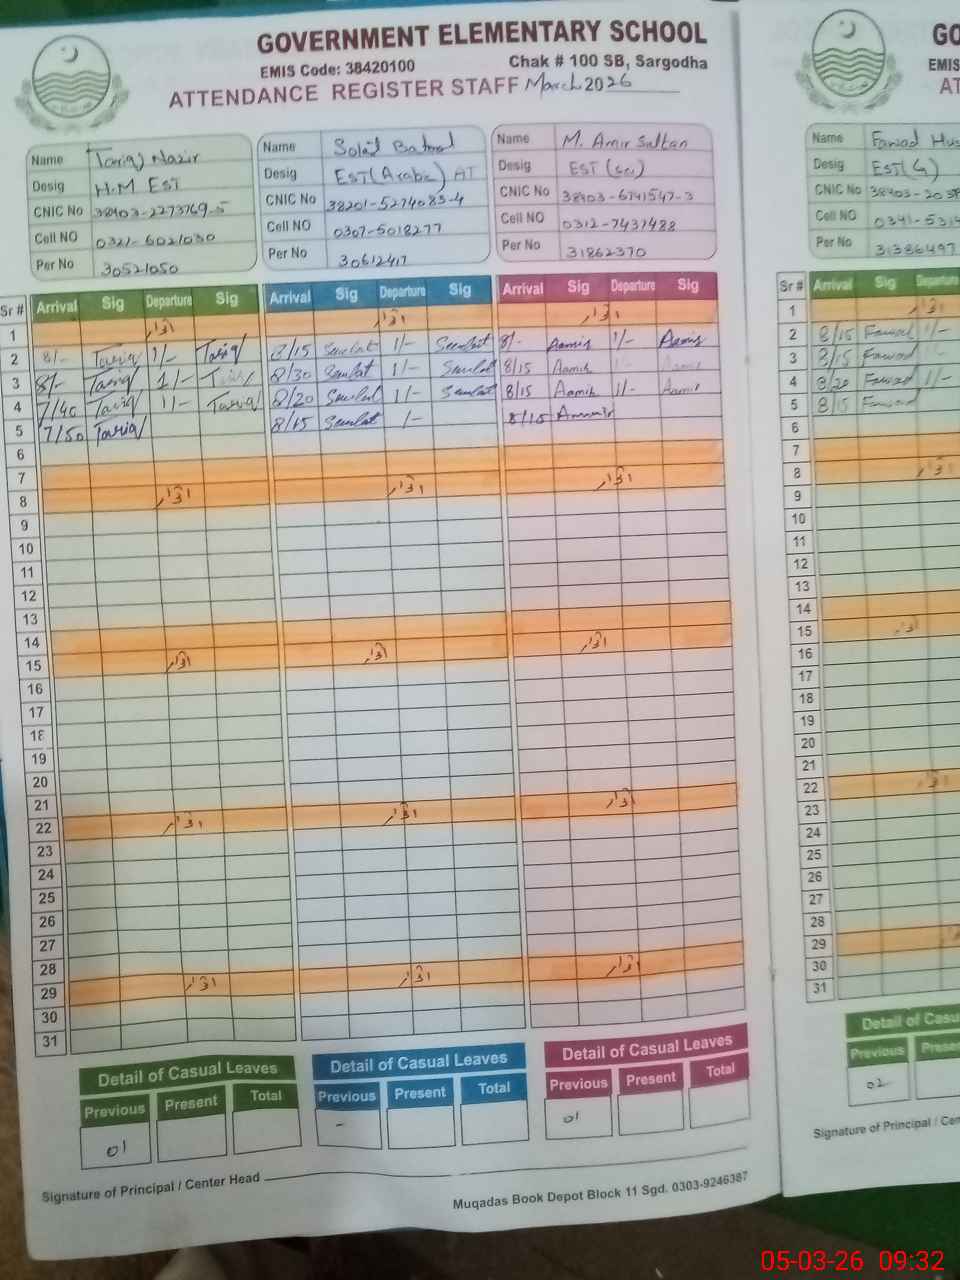 GOVERNMENT ELEMENTARY SCHOOL
EMIS Code: 38420100 Chak # 100 SB, Sargodha
ATTENDANCE REGISTER STAFF March 2026
Name Tariq Nazir
Desig H.M EST
CNIC No 38403-2273769-5
Cell NO 0321-6021030
Per No 30521050
Name
Desig EST (Arabic) AT
CNIC No 38201-5274083-4
Cell NO 0307-5018277
Per No 30612417
Name M. Amir Sultan
Desig EST (sci)
CNIC No 38403-6741547-3
Cell NO 0312-7437488
Per No 31862370
Sr # Arrival Sig Departure Sig Arrival Sig Departure Sig Arrival Sig Departure Sig
1 اتوار اتوار اتوار
2 8/- Tariq 1/- Tariq 8/15 1/- 8/- Aamir 1/- Aamir
3 8/- Tariq 1/- 8/30 1/- 8/15 Aamir
4 7/40 Tariq 1/- Tariq 8/20 1/- 8/15 Aamir 1/- Aamir
5 7/50 Tariq 8/15 1/- 8/15
6
7
8 اتوار اتوار اتوار
9
10
11
12
13
14
15 اتوار اتوار اتوار
16
17
18
19
20
21
22 اتوار اتوار اتوار
23
24
25
26
27
28
29 اتوار اتوار اتوار
30
31
Detail of Casual Leaves
Previous Present Total
01
Detail of Casual Leaves
Previous Present Total
-
Detail of Casual Leaves
Previous Present Total
01
Signature of Principal / Center Head
Muqadas Book Depot Block 11 Sgd. 0303-9246387
GO
EMIS
AT
Name Fawad Hus
Desig EST (G)
CNIC No 38403-
Cell NO 0341-5314
Per No 31386497
Sr # Arrival Sig Departure
1 اتوار
2 8/15 Fawad 1/-
3 8/15 Fawad
4 8/20 Fawad 1/-
5 8/15 Fawad
6
7
8 اتوار
9
10
11
12
13
14
15 اتوار
16
17
18
19
20
21
22 اتوار
23
24
25
26
27
28
29
30
31
Detail of Casu
Previous Prese
02
Signature of Principal / Cen
05-03-26 09:32